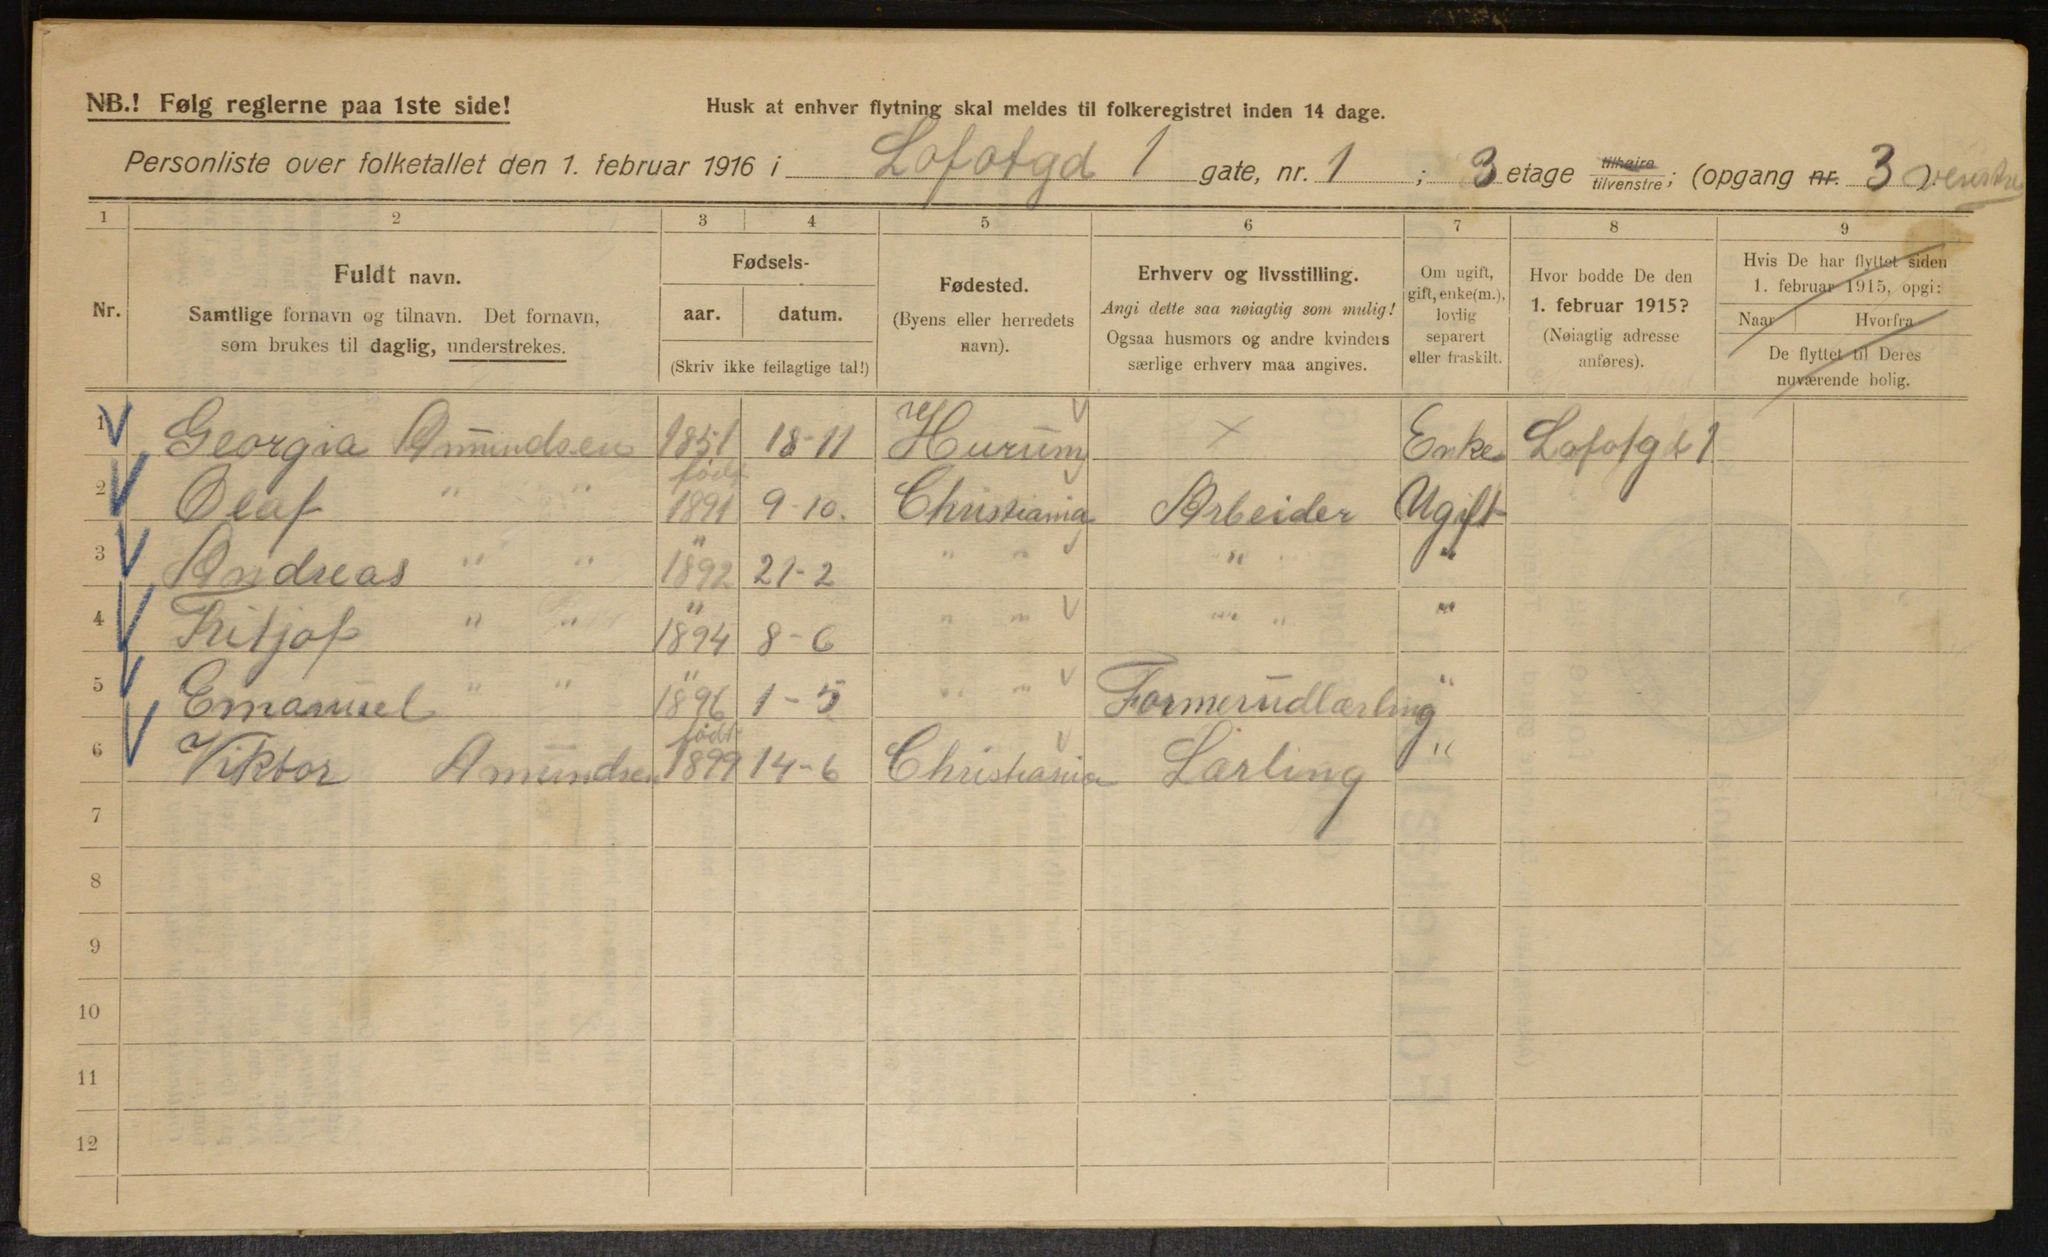 NB.! Følg reglerne paa 1ste side!
Husk at enhver flytning skal meldes til folkeregistret inden 14 dage.
Personliste over folketallet den 1. februar 1916 i Lofotgd 1 gate, nr. 1 ; 3 etage tilhøire tilvenstre; (opgang nr. 3 venstre
1 2 3 4 5 6 7 8 9
Nr.
Fuldt navn.
Samtlige fornavn og tilnavn. Det fornavn,
som brukes til daglig, understrekes.
Fødsels-
aar. datum.
(Skriv ikke feilagtige tal!)
Fødested.
(Byens eller herredets
navn).
Erhverv og livsstilling.
Angi dette saa nøiagtig som mulig!
Ogsaa husmors og andre kvinders
særlige erhverv maa angives.
Om ugift,
gift, enke(m.),
lovlig
separert
eller fraskilt.
Hvor bodde De den
1. februar 1915?
(Nøiagtig adresse
anføres).
Hvis De har flyttet siden
1. februar 1915, opgi:
Naar Hvorfra
De flyttet til Deres
nuværende bolig.
1 Georgia Amundsen 1851 18-11 Hurum × Enke Lofotgd 1
2 Olaf " " født 1891 9-10. Christiania Arbeider Ugift
3 Andreas " " " 1892 21-2 " " " "
4 Fritjof " " " 1894 8-6 " " " " "
5 Emanuel " " " 1896 1-5 " " Formerudlærling "
6 Viktor Amundsen født 1899 14-6 Christiania Lærling "
7
8
9
10
11
12